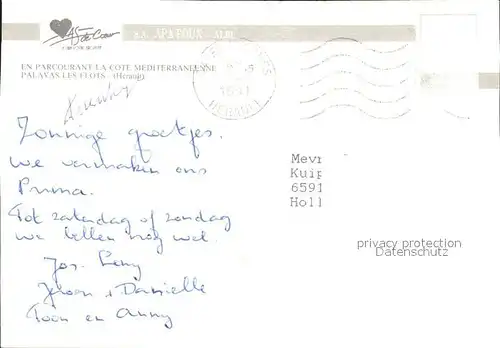 de Coeur
APA-POUX - ALBI
EN PARCOURANT LA COTE MEDITERRANEENNE
PALAVAS LES FLOTS (Hérault)
HERAULT
Zonnige groetjes.
We vermaken ons
Prima.
Tot zaterdag of zondag
we bellen nog wel.
Jos. Leny
Jeroen + Danielle
Toon en Anny
Mevr
Kuip
6591
Holl
privacy protection
Datenschutz